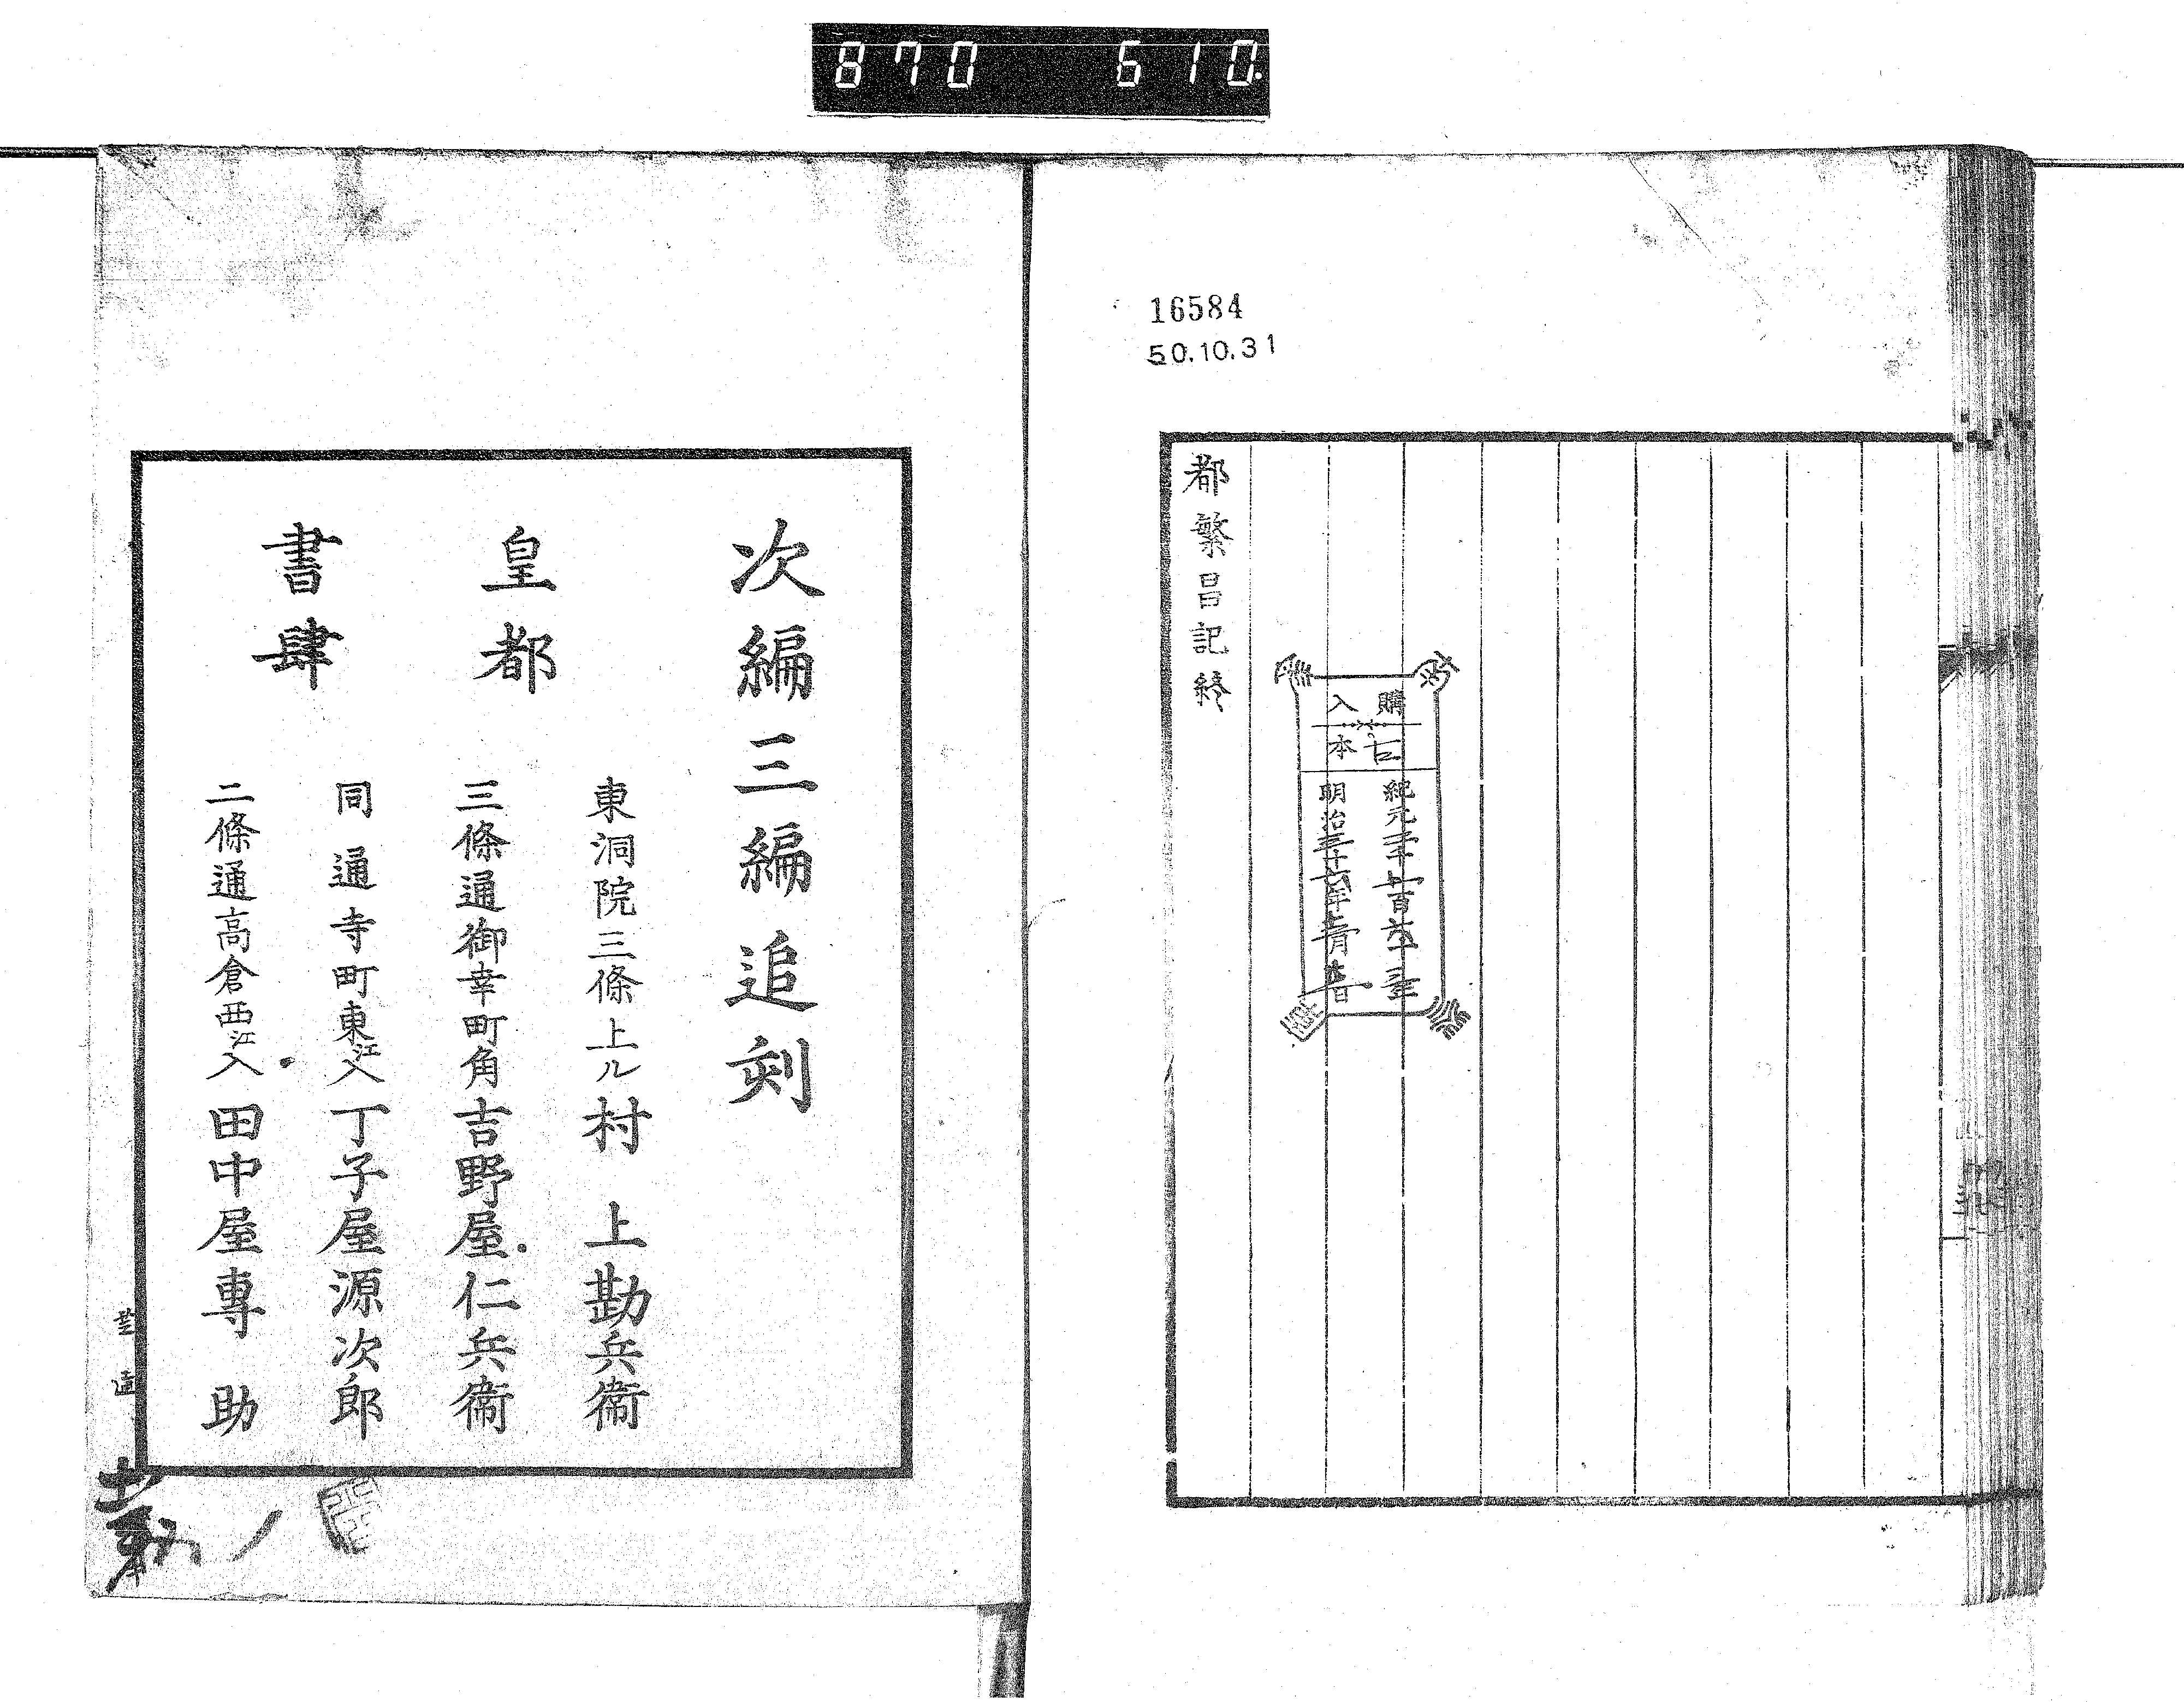 870 610.
16584
50.10.31
都繁昌記終
購入
古本
紀元
明治
次編三編追刻
皇都
書肆
東洞院三條上ル村上勘兵衞
三條通御幸町角吉野屋仁兵衞
同通寺町東江入丁子屋源次郎
二條通高倉西江入田中屋專助